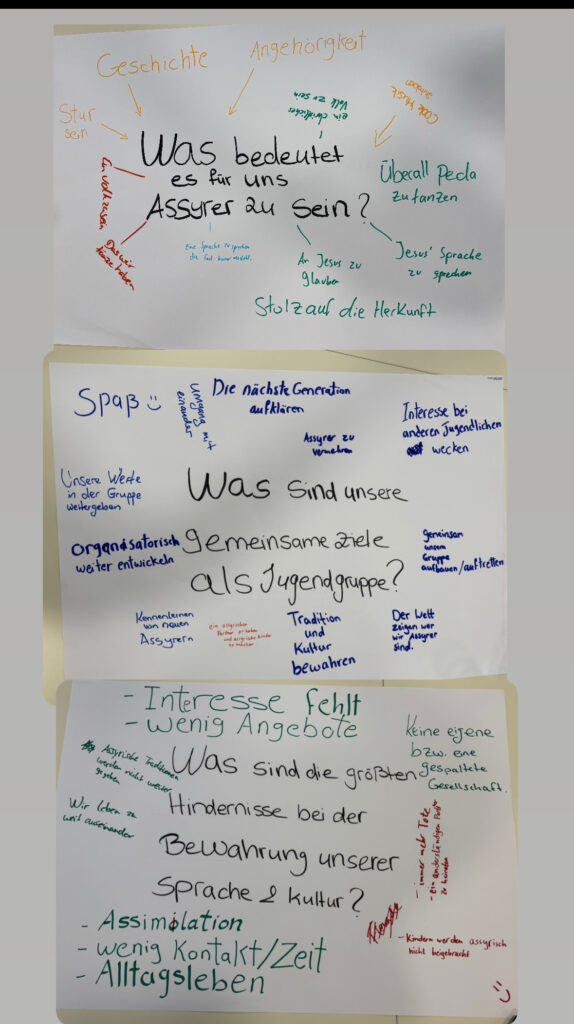 Geschichte
Angehörigkeit
Stur
sein
ein christliches
Volk zu sein
Coole Musik
Was bedeutet
es für uns
Assyrer zu sein?
Überall Peda
zu tanzen
Ein Volk zu sein
Das wir
tänze haben
Eine Sprache zu sprechen
die fast keiner
An Jesus zu
glauben
Jesus' Sprache
zu sprechen
Stolz auf die Herkunft
Spaß
Umgang mit
einander
Die nächste Generation
aufklären
Assyrer zu
vermehren
Interesse bei
anderen Jugendlichen
wecken
Unsere Werte
in der Gruppe
weitergeben
Was sind unsere
gemeinsame Ziele
als Jugendgruppe?
Organisatorisch
weiter entwickeln
gemeinsam
unsere
Gruppe
aufbauen/auftretten
Kennenlernen
von neuen
Assyrern
ein assyrischen
Partner zu haben
und assyrische Kinder
zu machen
Tradition
und
Kultur
bewahren
Der Welt
zeigen wer
wir Assyrer
sind.
- Interesse fehlt
- wenig Angebote
Assyrische Traditionen
werden nicht weiter
gegeben
Keine eigene
bzw. eine
gespaltete
Gesellschaft.
Was sind die größten
Hindernisse bei der
Bewahrung unserer
Sprache & Kultur?
Wir leben zu
weit auseinander
- immer mehr Tote
- Kindern werden assyrisch
nicht beigebracht
- Assimilation
- wenig Kontakt/Zeit
- Alltagsleben